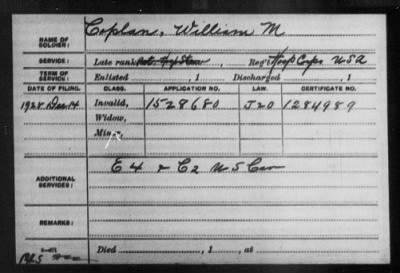 Coplan, William M
NAME OF SOLDIER:
SERVICE: Late rank Regt Hosp Corps USA
TERM OF SERVICE: Enlisted , 1 Discharged , 1
DATE OF FILING. CLASS. APPLICATION NO. LAW. CERTIFICATE NO.
1928 Dec 14 Invalid, 1528680 J20 1284989
Widow,
Minor,
ADDITIONAL SERVICES: E 4 & C2 US Cav
REMARKS:
Died , 1 , at